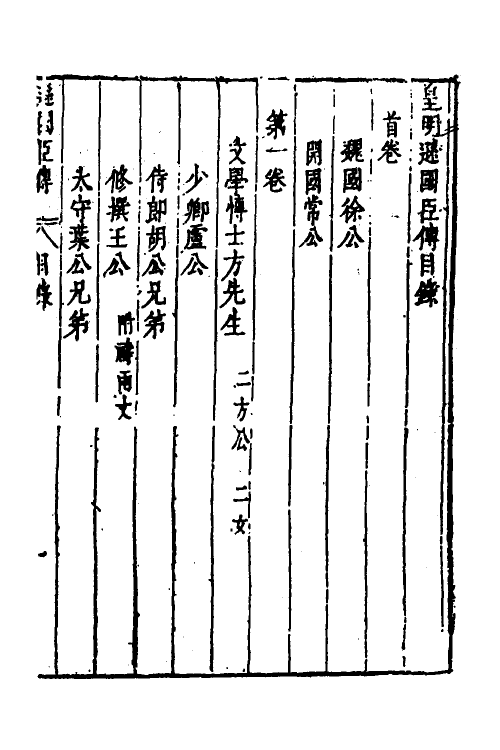 皇明遜國臣傳目錄
首卷
魏國徐公
開國常公
第一卷
文學博士方先生 二方公 二女
少卿盧公
侍郎胡公兄弟
修撰王公 附禱雨文
太守葉公兄弟
遜國臣傳 目錄